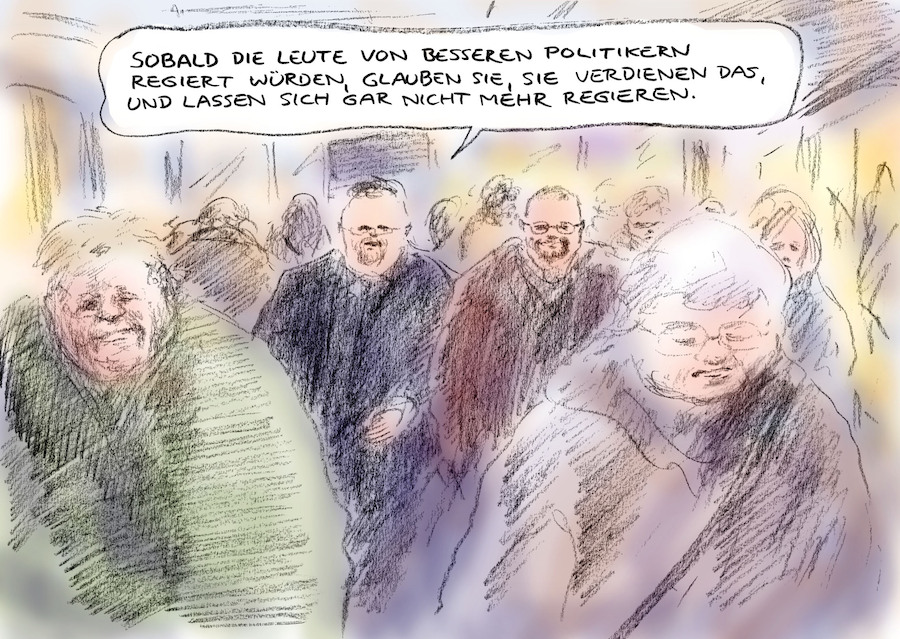 SOBALD DIE LEUTE VON BESSEREN POLITIKERN
REGIERT WÜRDEN, GLAUBEN SIE, SIE VERDIENEN DAS,
UND LASSEN SICH GAR NICHT MEHR REGIEREN.